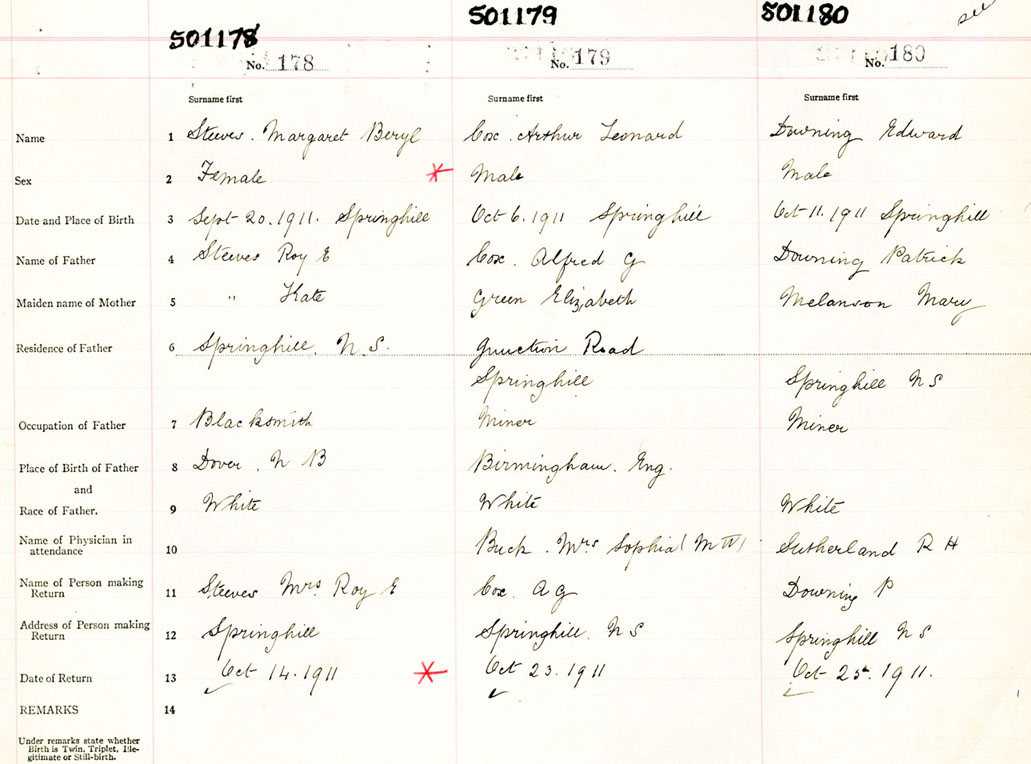 501178 501179 501180
No. 178 No. 179 No. 180
Surname first Surname first Surname first
Name 1 Steeves. Margaret Beryl Cox. Arthur Leonard Downing Edward
Sex 2 Female Male Male
Date and Place of Birth 3 Sept 20. 1911. Springhill Oct 6. 1911 Springhill Oct 11. 1911 Springhill
Name of Father 4 Steeves Roy E Cox. Alfred G Downing Patrick
Maiden name of Mother 5 " Kate Green Elizabeth Melanson Mary
Residence of Father 6 Springhill. N.S. Junction Road
Springhill Springhill N S
Occupation of Father 7 Blacksmith Miner Miner
Place of Birth of Father 8 Dover. N B Birmingham. Eng.
and
Race of Father. 9 White White White
Name of Physician in
attendance 10 Buck. Mrs Sophia (M W) Sutherland R H
Name of Person making
Return 11 Steeves Mrs Roy E Cox. A G Downing P
Address of Person making
Return 12 Springhill Springhill. N S Springhill N S
Date of Return 13 Oct 14. 1911 Oct 23. 1911 Oct 25. 1911.
REMARKS 14
Under remarks state whether
Birth is Twin, Triplet, Ille-
gitimate or Still-birth.